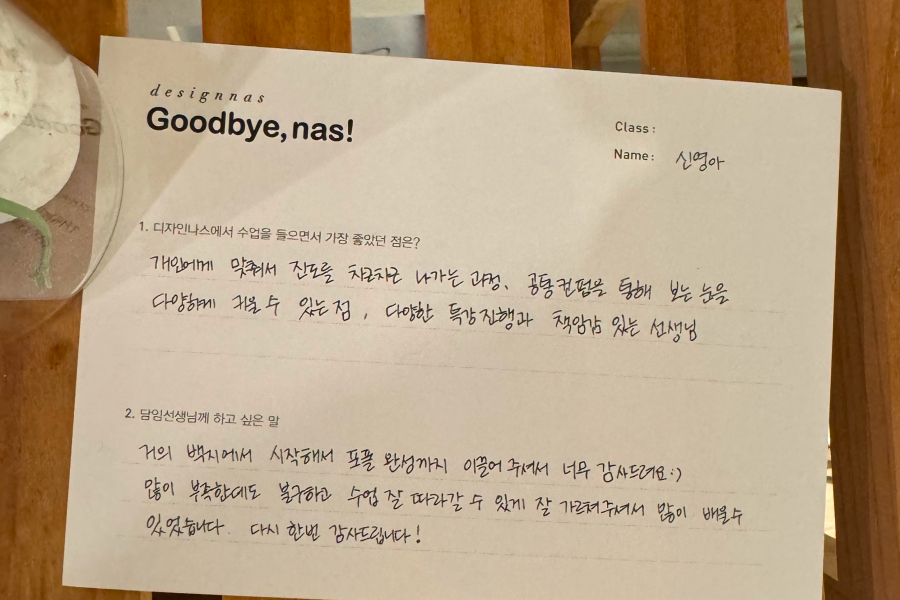 designnas
Goodbye, nas!
Class :
Name : 신영아
1. 디자인나스에서 수업을 들으면서 가장 좋았던 점은?
개인에게 맞춰서 진도를 차근차근 나가는 과정, 공통컨펌을 통해 보는 눈을
다양하게 키울 수 있는 점, 다양한 특강진행과 책임감 있는 선생님
2. 담임선생님께 하고 싶은 말
거의 백지에서 시작해서 포폴 완성까지 이끌어 주셔서 너무 감사드려요:)
많이 부족한데도 불구하고 수업 잘 따라갈 수 있게 잘 가르쳐주셔서 많이 배울수
있었습니다. 다시 한번 감사드립니다!